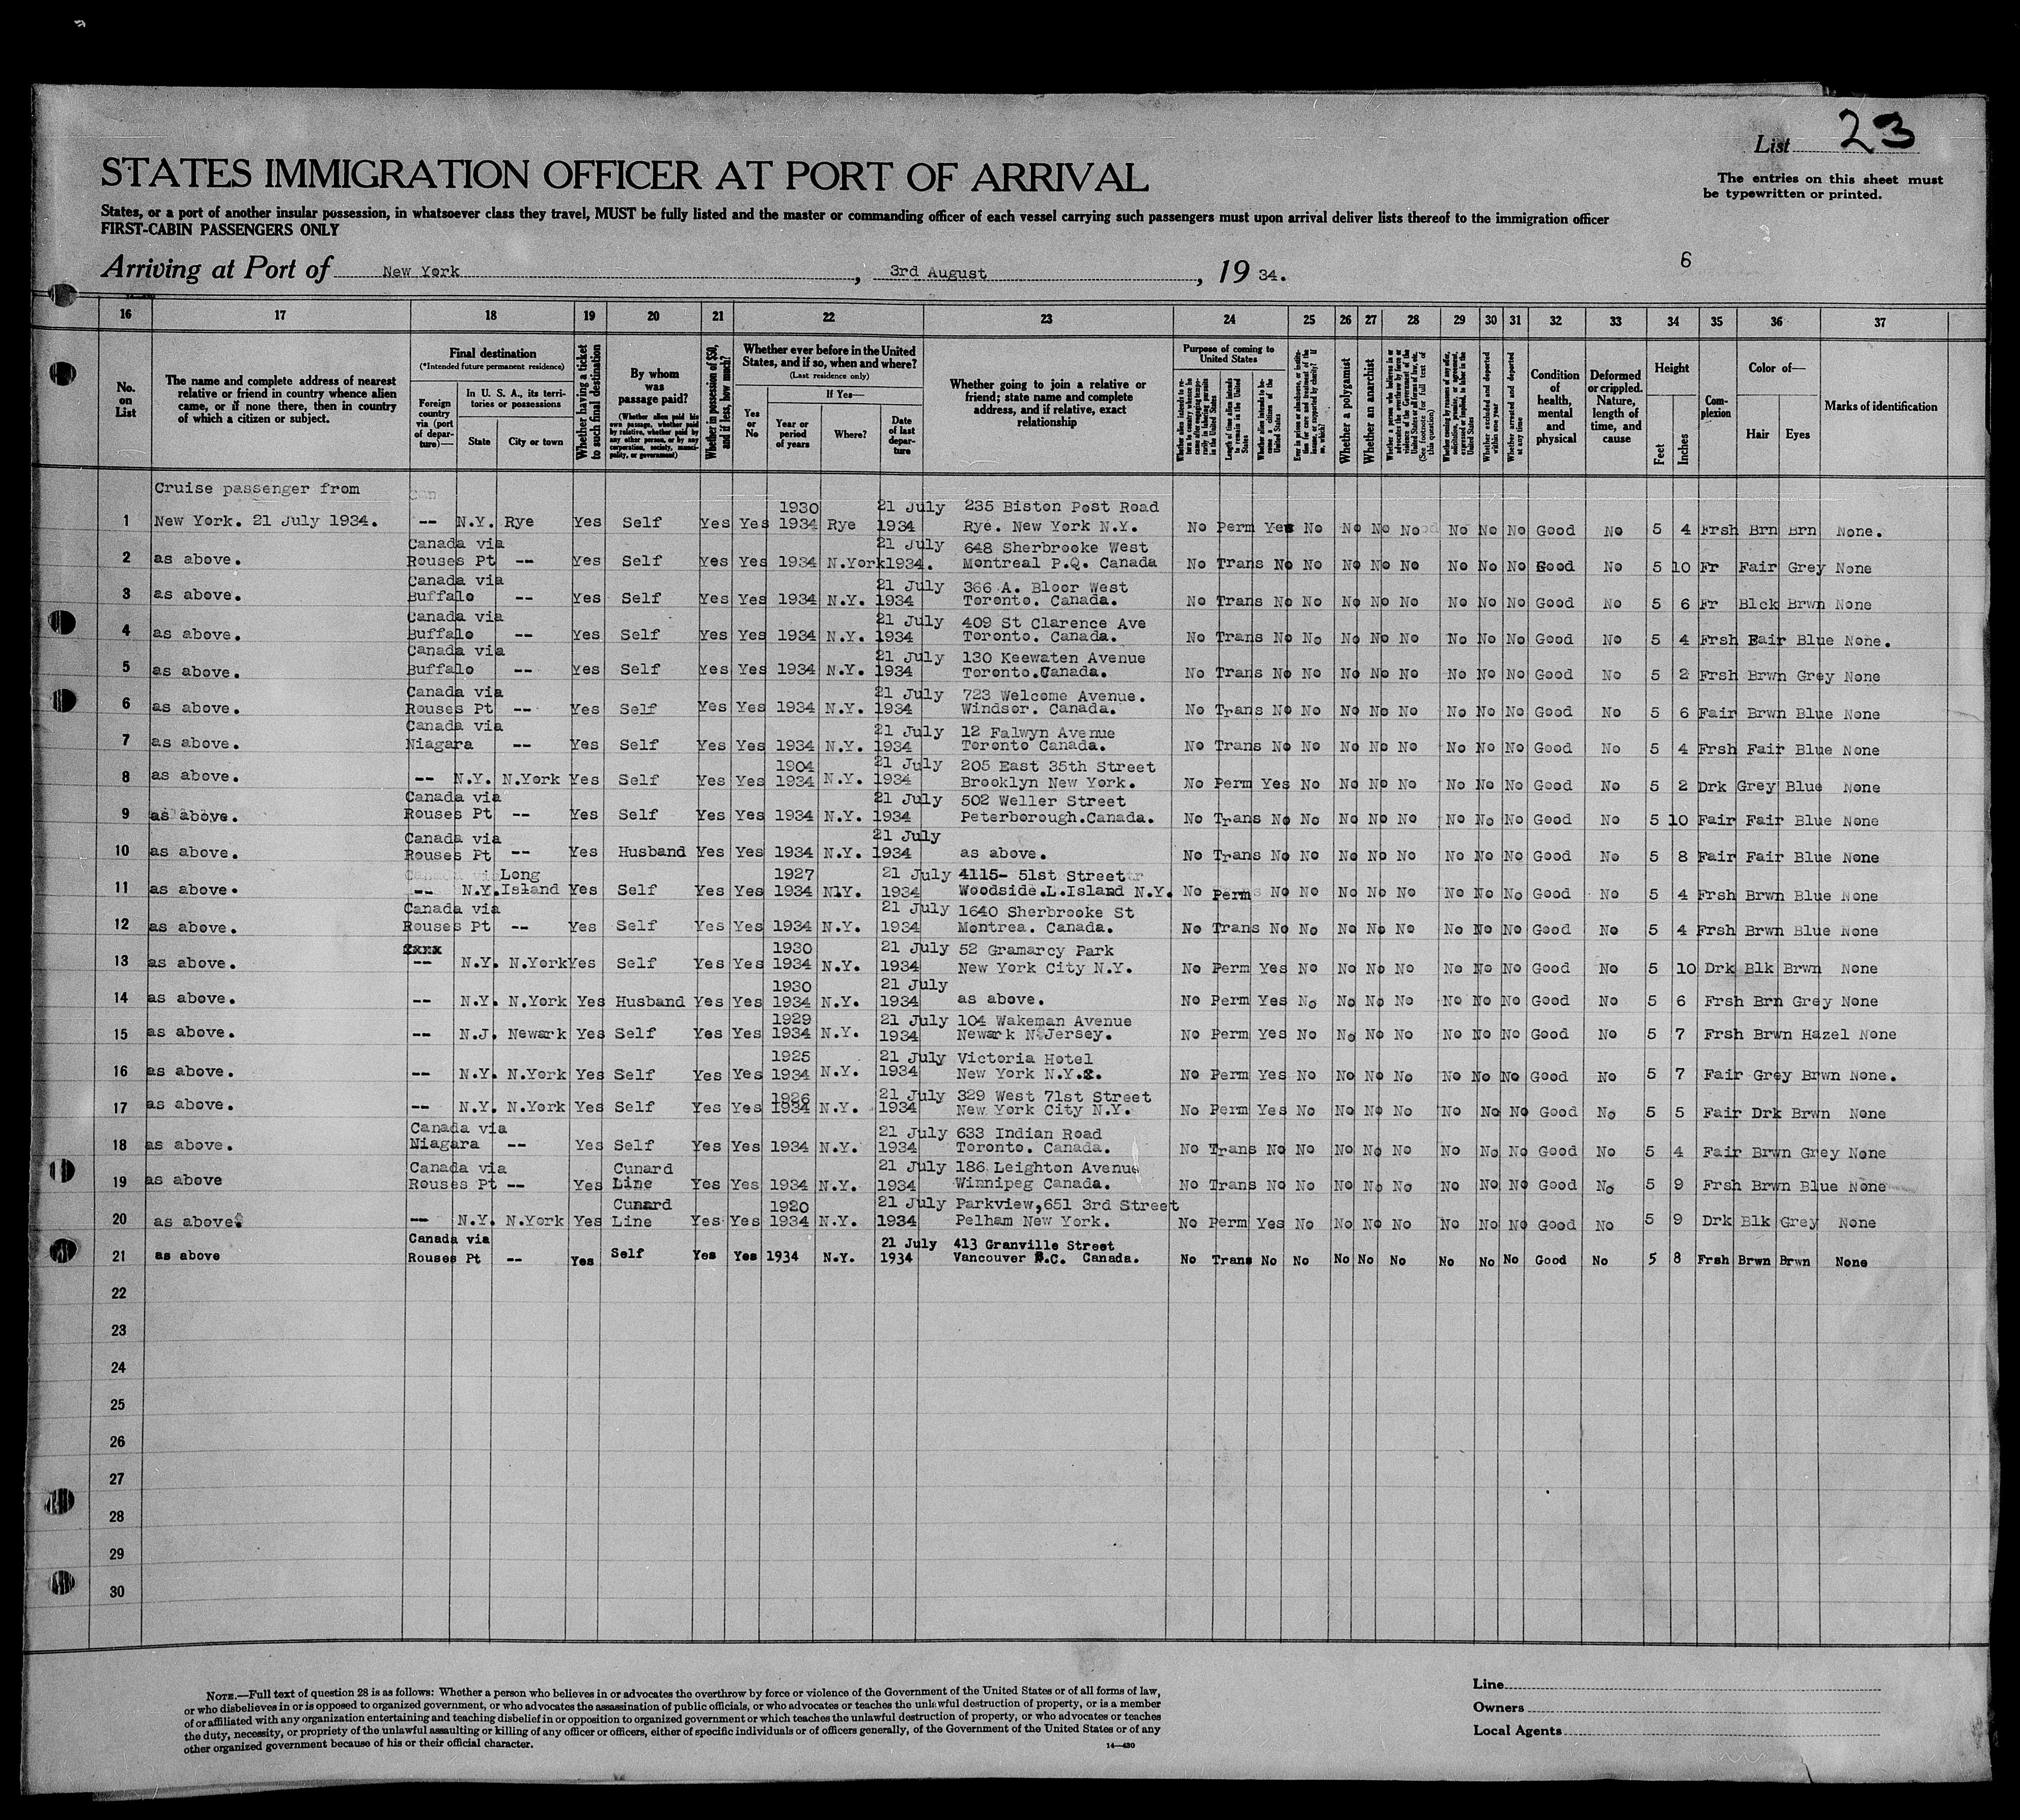 List 23
STATES IMMIGRATION OFFICER AT PORT OF ARRIVAL
The entries on this sheet must
be typewritten or printed.
States, or a port of another insular possession, in whatsoever class they travel, MUST be fully listed and the master or commanding officer of each vessel carrying such passengers must upon arrival deliver lists thereof to the immigration officer
FIRST-CABIN PASSENGERS ONLY
Arriving at Port of New York, 3rd August, 19 34.
6
16 17 18 19 20 21 22 23 24 25 26 27 28 29 30 31 32 33 34 35 36 37
No. on List
The name and complete address of nearest relative or friend in country whence alien came, or if none there, then in country of which a citizen or subject.
Final destination
(*Intended future permanent residence)
Foreign country via (port of departure)—
In U. S. A., its territories or possessions
State
City or town
Whether having a ticket to such final destination
By whom was passage paid?
(Whether alien paid his own passage, whether paid by relative, whether paid by any other person, or by any corporation, society, municipality, or government)
Whether in possession of $50, and if less, how much?
Whether ever before in the United States, and if so, when and where?
(Last residence only)
Yes or No
If Yes—
Year or period of years
Where?
Date of last departure
Whether going to join a relative or friend; state name and complete address, and if relative, exact relationship
Purpose of coming to United States
Length of time alien intends to remain in the United States
Whether alien intends to become a citizen of the United States
Whether a polygamist
Whether an anarchist
(See footnote for full text of this question)
Whether excluded and deported within one year
Whether arrested and deported at any time
Condition of health, mental and physical
Deformed or crippled. Nature, length of time, and cause
Height
Feet
Inches
Complexion
Color of—
Hair
Eyes
Marks of identification
Cruise passenger from 1930 21 July 235 Biston Post Road
1 New York. 21 July 1934. -- N.Y. Rye Yes Self Yes Yes 1934 Rye 1934 Rye. New York N.Y. No Perm Yes No No No No No No No Good No 5 4 Frsh Brn Brn None.
Canada via 21 July 648 Sherbrooke West
2 as above. Rouses Pt -- Yes Self Yes Yes 1934 N.York 1934. Montreal P.Q. Canada No Trans No No No No No No No No Good No 5 10 Fr Fair Grey None
Canada via 21 July 366 A. Bloor West
3 as above. Buffalo -- Yes Self Yes Yes 1934 N.Y. 1934 Toronto. Canada. No Trans No No No No No No No No Good No 5 6 Fr Blck Brwn None
Canada via 21 July 409 St Clarence Ave
4 as above. Buffalo -- Yes Self Yes Yes 1934 N.Y. 1934 Toronto. Canada. No Trans No No No No No No No No Good No 5 4 Frsh Fair Blue None.
Canada via 21 July 130 Keewaten Avenue
5 as above. Buffalo -- Yes Self Yes Yes 1934 N.Y. 1934 Toronto.Canada. No Trans No No No No No No No No Good No 5 2 Frsh Brwn Grey None
Canada via 21 July 723 Welcome Avenue.
6 as above. Rouses Pt -- Yes Self Yes Yes 1934 N.Y. 1934 Windsor. Canada. No Trans No No No No No No No No Good No 5 6 Fair Brwn Blue None
Canada via 21 July 12 Falwyn Avenue
7 as above. Niagara -- Yes Self Yes Yes 1934 N.Y. 1934 Toronto Canada. No Trans No No No No No No No No Good No 5 4 Frsh Fair Blue None
1904 21 July 205 East 35th Street
8 as above. -- N.Y. N.York Yes Self Yes Yes 1934 N.Y. 1934 Brooklyn New York. No Perm Yes No No No No No No No Good No 5 2 Drk Grey Blue None
Canada via 21 July 502 Weller Street
9 as above. Rouses Pt -- Yes Self Yes Yes 1934 N.Y. 1934 Peterborough.Canada. No Trans No No No No No No No No Good No 5 10 Fair Fair Blue None
Canada via 21 July
10 as above. Rouses Pt -- Yes Husband Yes Yes 1934 N.Y. 1934 as above. No Trans No No No No No No No No Good No 5 8 Fair Fair Blue None
Long 1927 21 July 4115- 51st Street
11 as above. -- N.Y. Island Yes Self Yes Yes 1934 N1Y. 1934 Woodside.L.Island N.Y. No Perm No No No No No No No No Good No 5 4 Frsh Brwn Blue None
Canada via 21 July 1640 Sherbrooke St
12 as above. Rouses Pt -- Yes Self Yes Yes 1934 N.Y. 1934 Montrea. Canada. No Trans No No No No No No No No Good No 5 4 Frsh Brwn Blue None
1930 21 July 52 Gramarcy Park
13 as above. -- N.Y. N.York Yes Self Yes Yes 1934 N.Y. 1934 New York City N.Y. No Perm Yes No No No No No No No Good No 5 10 Drk Blk Brwn None
1930 21 July
14 as above. -- N.Y. N.York Yes Husband Yes Yes 1934 N.Y. 1934 as above. No Perm Yes No No No No No No No Good No 5 6 Frsh Brn Grey None
1929 21 July 104 Wakeman Avenue
15 as above. -- N.J. Newark Yes Self Yes Yes 1934 N.Y. 1934 Newark N Jersey. No Perm Yes No No No No No No No Good No 5 7 Frsh Brwn Hazel None
1925 21 July Victoria Hotel
16 as above. -- N.Y. N.York Yes Self Yes Yes 1934 N.Y. 1934 New York N.Y. No Perm Yes No No No No No No No Good No 5 7 Fair Grey Brwn None.
1926 21 July 329 West 71st Street
17 as above. -- N.Y. N.York Yes Self Yes Yes 1934 N.Y. 1934 New York City N.Y. No Perm Yes No No No No No No No Good No 5 5 Fair Drk Brwn None
Canada via 21 July 633 Indian Road
18 as above. Niagara -- Yes Self Yes Yes 1934 N.Y. 1934 Toronto. Canada. No Trans No No No No No No No No Good No 5 4 Fair Brwn Grey None
Canada via Cunard 21 July 186 Leighton Avenue
19 as above Rouses Pt -- Yes Line Yes Yes 1934 N.Y. 1934 Winnipeg Canada. No Trans No No No No No No No No Good No 5 9 Frsh Brwn Blue None
Cunard 1920 21 July Parkview,651 3rd Street
20 as above. -- N.Y. N.York Yes Line Yes Yes 1934 N.Y. 1934 Pelham New York. No Perm Yes No No No No No No No Good No 5 9 Drk Blk Grey None
Canada via 21 July 413 Granville Street
21 as above Rouses Pt -- Yes Self Yes Yes 1934 N.Y. 1934 Vancouver B.C. Canada. No Trans No No No No No No No No Good No 5 8 Frsh Brwn Brwn None
22
23
24
25
26
27
28
29
30
NOTE.—Full text of question 28 is as follows: Whether a person who believes in or advocates the overthrow by force or violence of the Government of the United States or of all forms of law,
or who disbelieves in or is opposed to organized government, or who advocates the assassination of public officials, or who advocates or teaches the unlawful destruction of property, or is a member
of or affiliated with any organization entertaining and teaching disbelief in or opposition to organized government or which teaches the unlawful destruction of property, or who advocates or teaches
the duty, necessity, or propriety of the unlawful assaulting or killing of any officer or officers, either of specific individuals or of officers generally, of the Government of the United States or of any
other organized government because of his or their official character.
14—430
Line
Owners
Local Agents